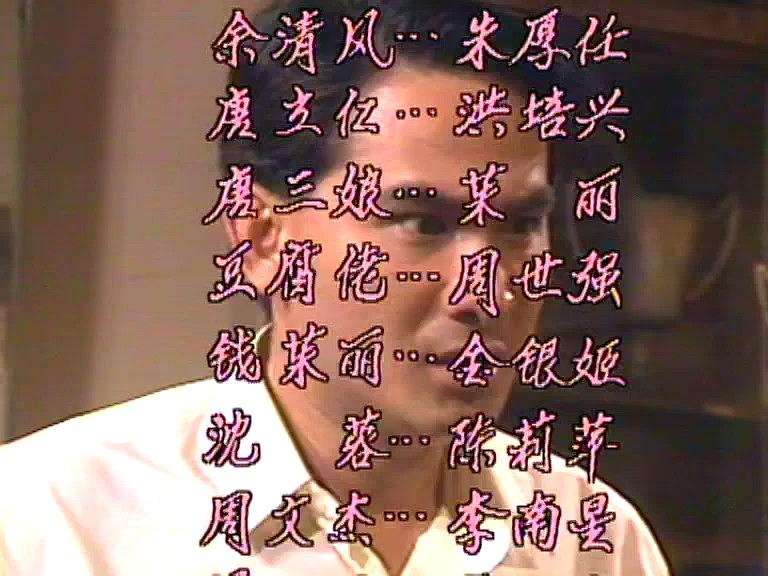 余清风…朱厚任
唐立仁…洪培兴
唐三娘…茱丽
豆腐佬…周世强
钱茱丽…金银姬
沈蓉…陈莉萍
周文杰…李南星